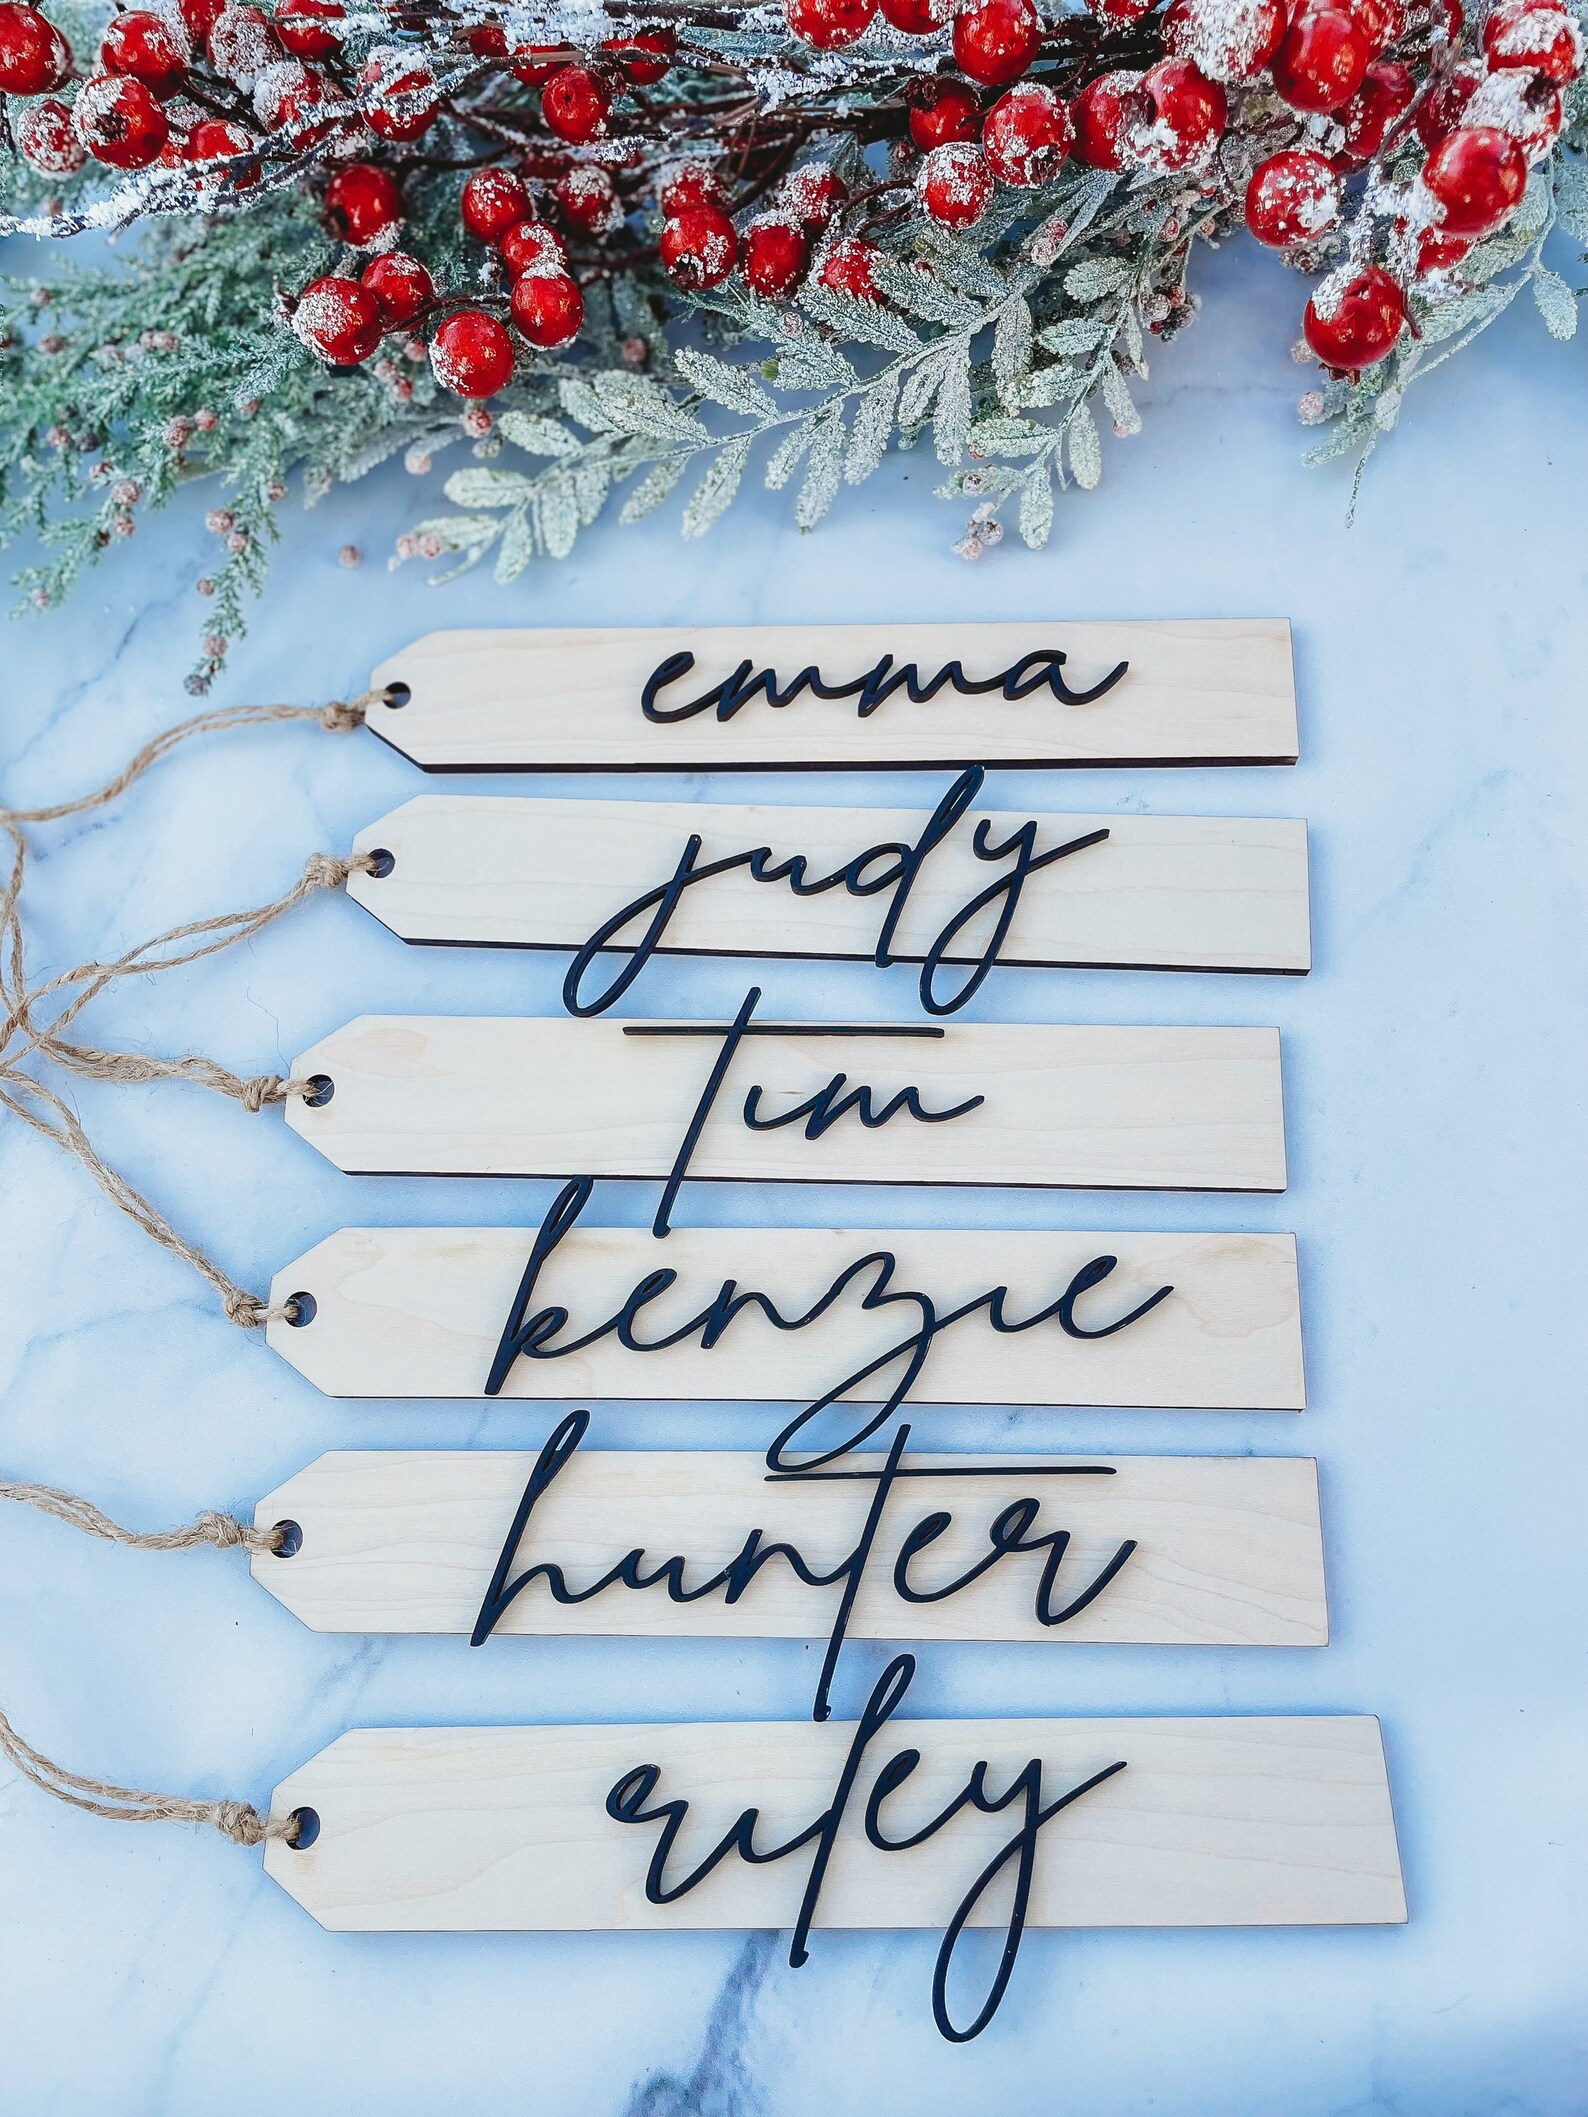 emma
judy
tim
kenzie
hunter
riley